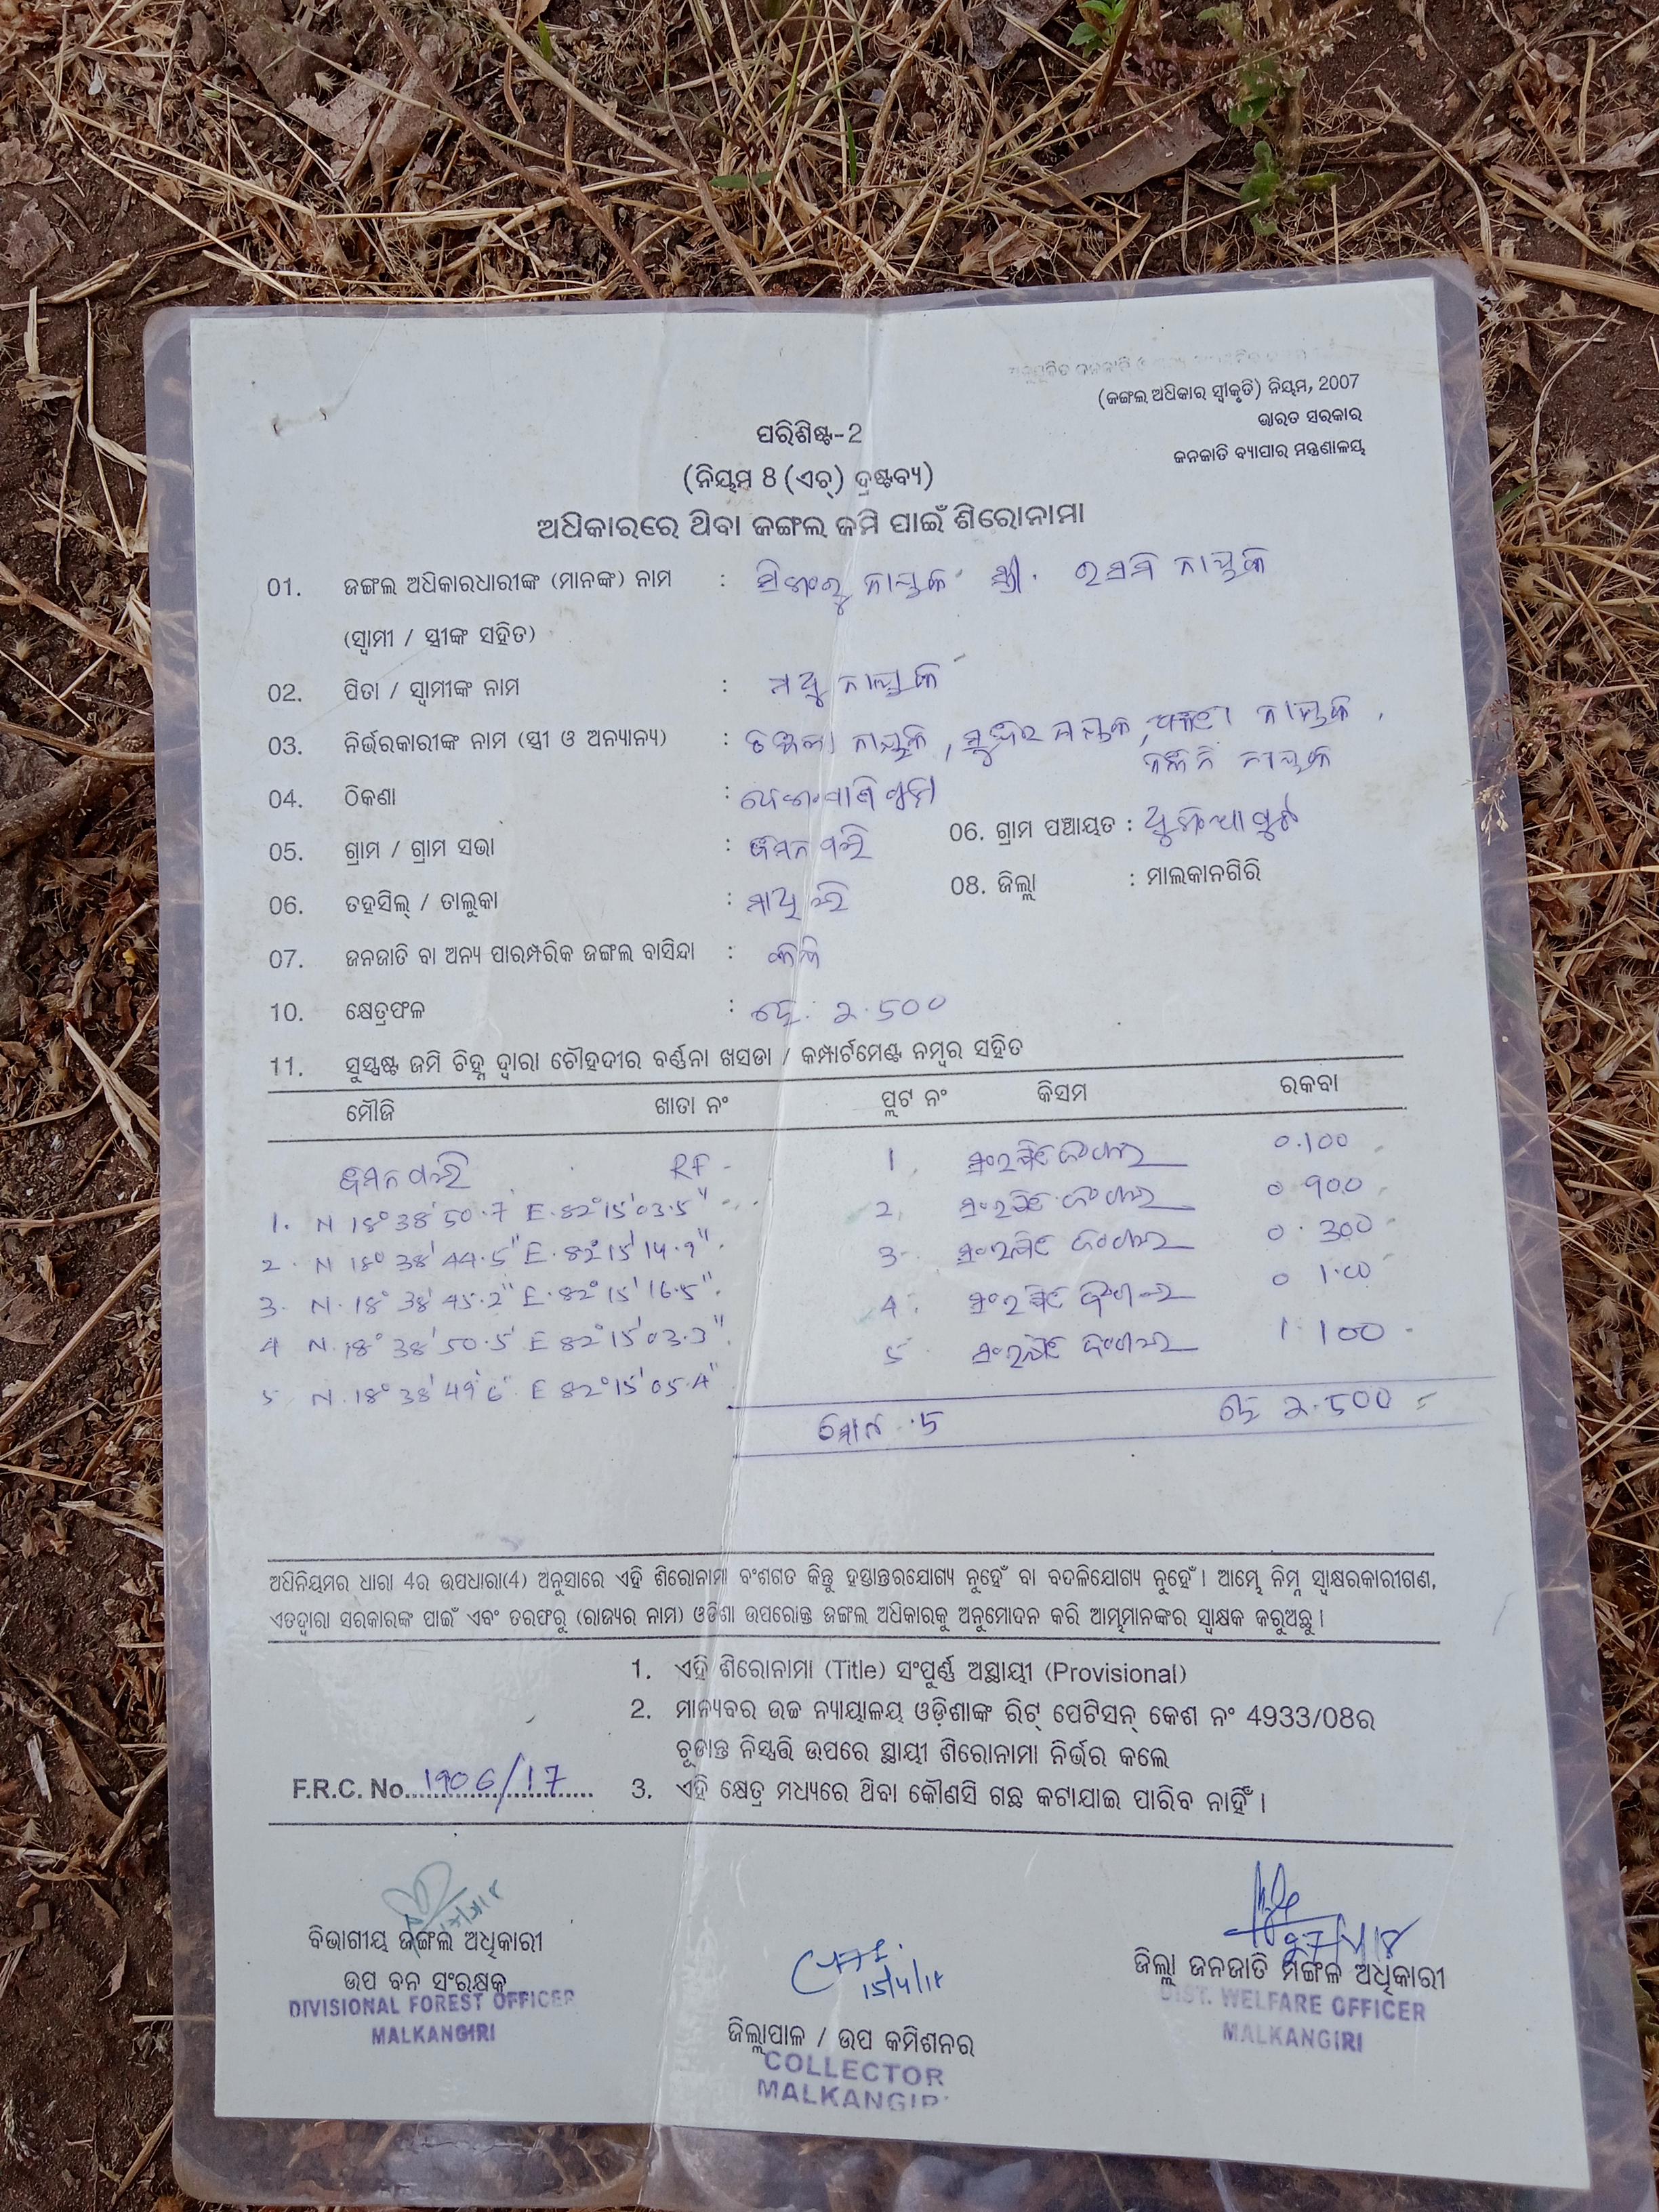 (ଜଙ୍ଗଲ ଅଧିକାର ସ୍ୱୀକୃତି) ନିୟମ, 2007
ଭାରତ ସରକାର
ଜନଜାତି ବ୍ୟାପାର ମନ୍ତ୍ରଣାଳୟ
ପରିଶିଷ୍ଟ-2
(ନିୟମ 8 (ଏଚ୍) ଦ୍ରଷ୍ଟବ୍ୟ)
ଅଧିକାରରେ ଥିବା ଜଙ୍ଗଲ ଜମି ପାଇଁ ଶିରୋନାମା
01. ଜଙ୍ଗଲ ଅଧିକାରଧାରୀଙ୍କ (ମାନଙ୍କ) ନାମ :
(ସ୍ୱାମୀ / ସ୍ତ୍ରୀଙ୍କ ସହିତ)
02. ପିତା / ସ୍ୱାମୀଙ୍କ ନାମ :
03. ନିର୍ଭରକାରୀଙ୍କ ନାମ (ସ୍ତ୍ରୀ ଓ ଅନ୍ୟାନ୍ୟ) :
04. ଠିକଣା :
05. ଗ୍ରାମ / ଗ୍ରାମ ସଭା : 06. ଗ୍ରାମ ପଞ୍ଚାୟତ :
06. ତହସିଲ୍ / ତାଲୁକା : 08. ଜିଲ୍ଲା : ମାଲକାନଗିରି
07. ଜନଜାତି ବା ଅନ୍ୟ ପାରମ୍ପରିକ ଜଙ୍ଗଲ ବାସିନ୍ଦା :
10. କ୍ଷେତ୍ରଫଳ : ହେ. ୨.୫୦୦
11. ସୁସ୍ପଷ୍ଟ ଜମି ଚିହ୍ନ ଦ୍ୱାରା ଚୌହଦୀର ବର୍ଣ୍ଣନା ଖସଡା / କମ୍ପାର୍ଟମେଣ୍ଟ ନମ୍ବର ସହିତ
ମୌଜି ଖାତା ନଂ ପ୍ଲଟ ନଂ କିସମ ରକବା
RF 1 ସଂରକ୍ଷିତ ଜଂଗଲ 0.100
1. N 18° 38' 50.7 E.82°15'03.5" 2 ସଂରକ୍ଷିତ ଜଂଗଲ 0 900
2. N 18° 38' 44.5" E.82°15'14.9" 3 ସଂରକ୍ଷିତ ଜଂଗଲ 0.300
3. N.18° 38' 45.2" E.82°15'16.5" 4 ସଂରକ୍ଷିତ ଜଂଗଲ 0 1.00
4 N.18° 38' 50.5' E 82°15'03.3" 5 ସଂରକ୍ଷିତ ଜଂଗଲ 1.100
5 N.18° 38' 49'6" E 82°15'05.4"
ମୋଟ ୫ ହେ ୨.୫୦୦
ଅଧିନିୟମର ଧାରା 4ର ଉପଧାରା(4) ଅନୁସାରେ ଏହି ଶିରୋନାମା ବଂଶଗତ କିନ୍ତୁ ହସ୍ତାନ୍ତରଯୋଗ୍ୟ ନୁହେଁ ବା ବଦଳିଯୋଗ୍ୟ ନୁହେଁ । ଆମ୍ଭେ ନିମ୍ନ ସ୍ୱାକ୍ଷରକାରୀଗଣ,
ଏତଦ୍ୱାରା ସରକାରଙ୍କ ପାଇଁ ଏବଂ ତରଫରୁ (ରାଜ୍ୟର ନାମ) ଓଡିଶା ଉପରୋକ୍ତ ଜଙ୍ଗଲ ଅଧିକାରକୁ ଅନୁମୋଦନ କରି ଆମ୍ଭମାନଙ୍କର ସ୍ୱାକ୍ଷକ କରୁଅଛୁ ।
1. ଏହି ଶିରୋନାମା (Title) ସଂପୂର୍ଣ୍ଣ ଅସ୍ଥାୟୀ (Provisional)
2. ମାନ୍ୟବର ଉଚ୍ଚ ନ୍ୟାୟାଳୟ ଓଡ଼ିଶାଙ୍କ ରିଟ୍ ପେଟିସନ୍ କେଶ ନଂ 4933/08ର
ଚୂଡାନ୍ତ ନିସ୍ପତ୍ତି ଉପରେ ସ୍ଥାୟୀ ଶିରୋନାମା ନିର୍ଭର କଲେ
F.R.C. No. 1906/17 3. ଏହି କ୍ଷେତ୍ର ମଧ୍ୟରେ ଥିବା କୌଣସି ଗଛ କଟାଯାଇ ପାରିବ ନାହିଁ ।
ବିଭାଗୀୟ ଜଙ୍ଗଲ ଅଧିକାରୀ
ଉପ ବନ ସଂରକ୍ଷକ
DIVISIONAL FOREST OFFICER
MALKANGIRI
15/4/18
ଜିଲ୍ଲାପାଳ / ଉପ କମିଶନର
COLLECTOR
MALKANGIRI
ଜିଲ୍ଲା ଜନଜାତି ମଙ୍ଗଳ ଅଧିକାରୀ
DIST. WELFARE OFFICER
MALKANGIRI